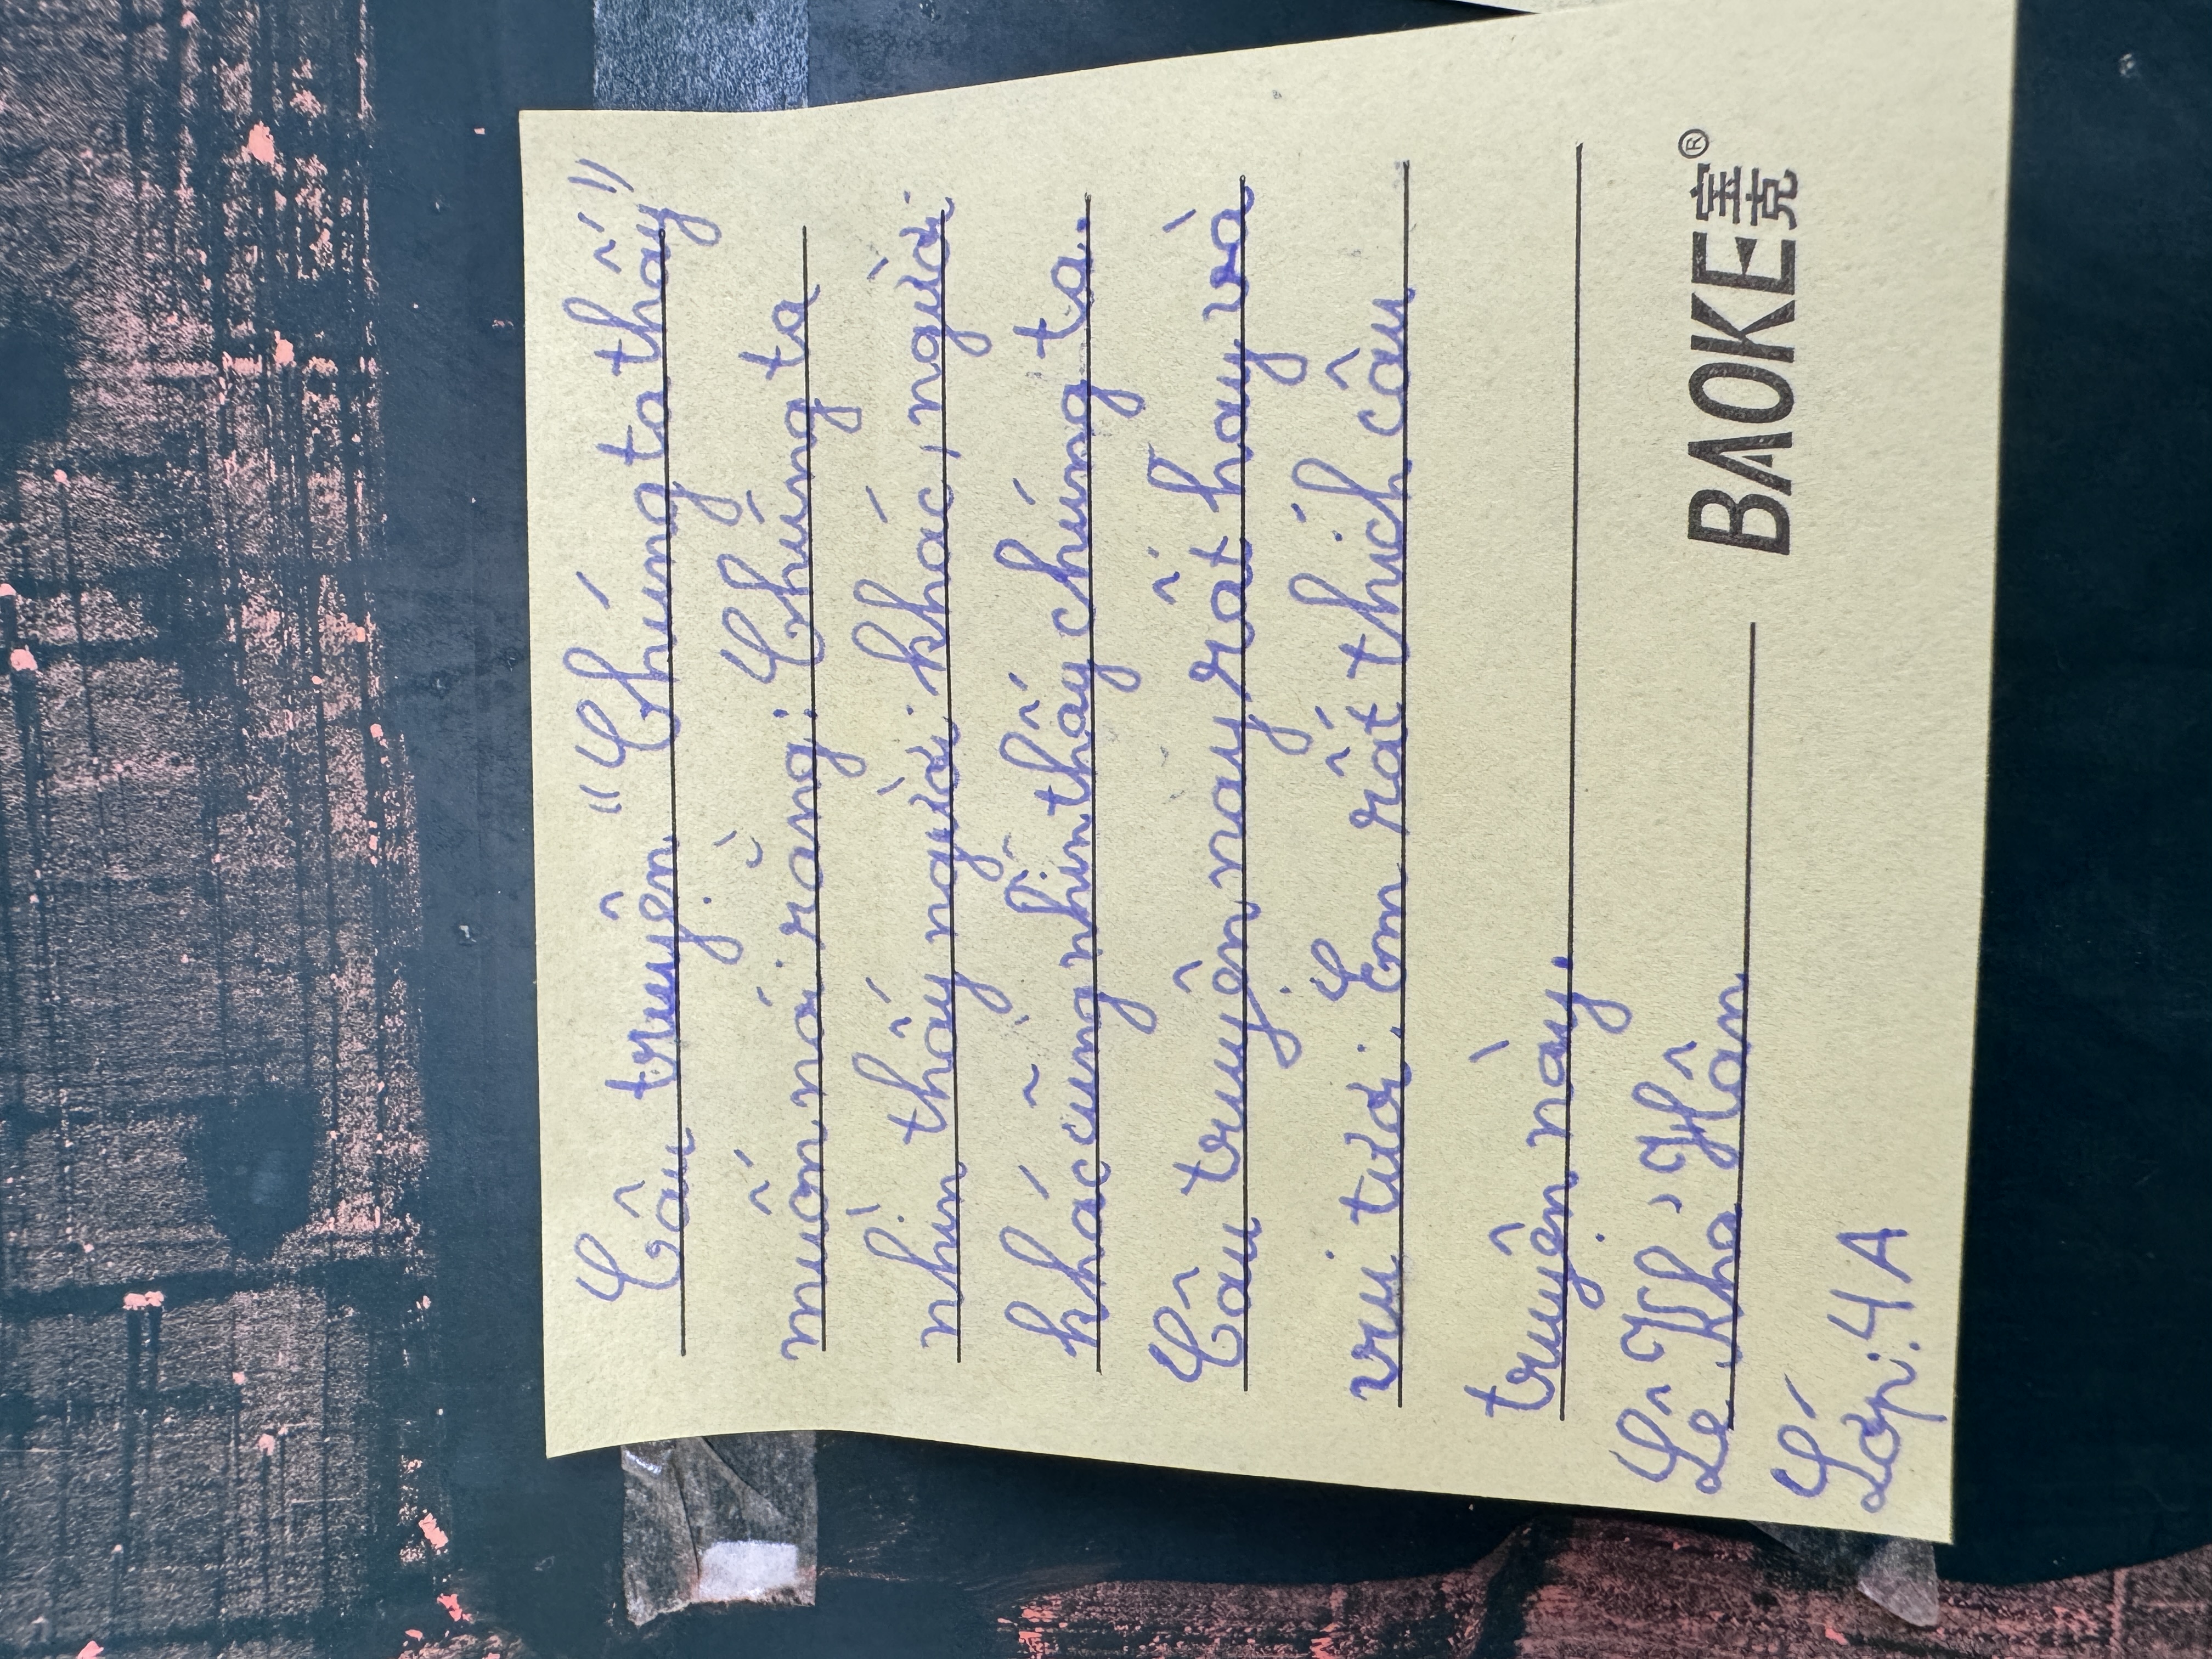 Câu truyện "Chúng ta thấy"
muốn nói rằng: Chúng ta
nhìn thấy người khác, người
khác cũng nhìn thấy chúng ta.
Câu truyện này rất hay và
vui tươi. Em rất thích câu
truyện này.
Lê Khả Hân
Lớp: 4A
BAOKE 宝克®